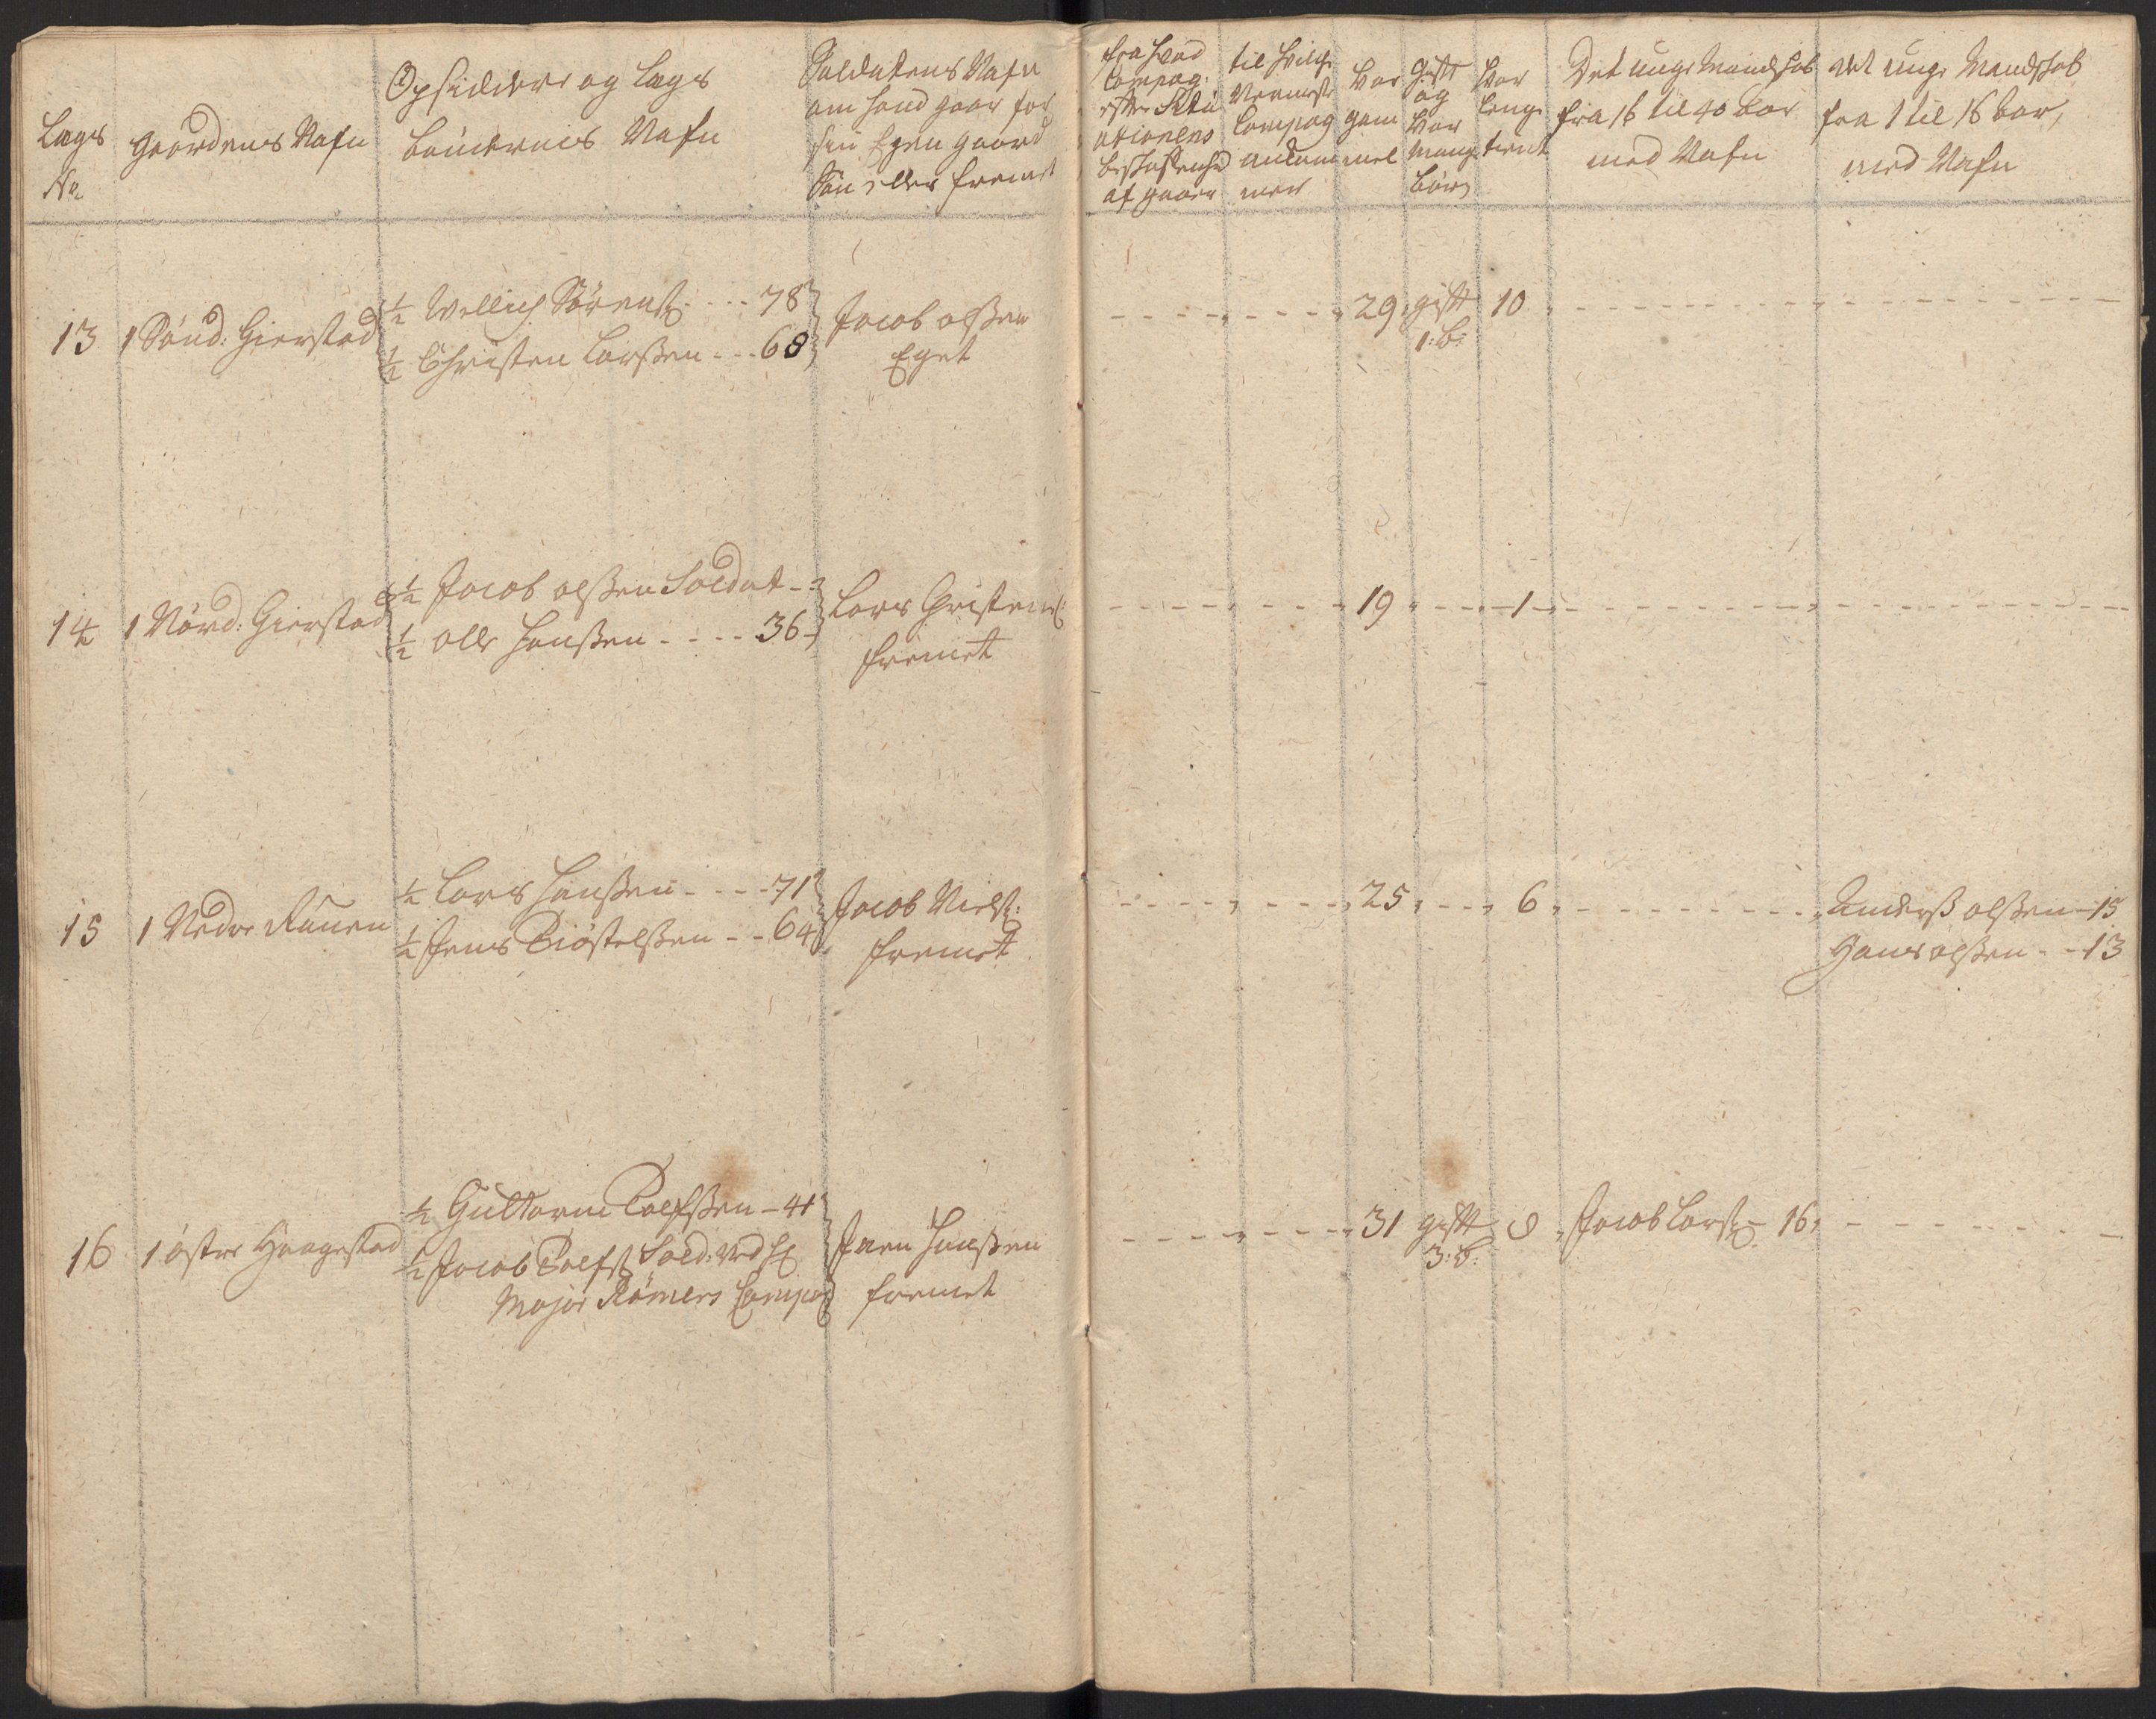 Lags
No
Gaardens Nafn
Opsiddere og Lags
Bøndernis Nafn
Soldatens Nafn
om hand gaar for
sin Egen gaard
Søn eller fremet
fra hvad
Compag:
efter
ationens
beskaffenhed
af gaaer
til hvilche
Neermeste
Compag
ankommer
Hvor
gam
mel
gift
og
hvor
mange
børn
hvor
lenge
tient
Det unge Mandskab
fra 16 til 40 aar
med Nafn
det unge Mandskab
fra 1 til 16 aar,
med Nafn
13 1 Sønd: Gierstad
½ Wellich Sørens: - - - 78
½ Christen Larssen - - - 68
Jacob olssen
Eget
29 gift 10
1: b:
14 1 Nørd: Gierstad
½ Jacob olssen Soldat -
½ olle Hanssen - - - - 36
Lars Christens:
fremet
19 - - - 1
15 1 Nedre Rauen
½ Lars Hanssen - - - - 71
½ Jens Kiøstelssen - - 64
Jacob Niels:
fremet
25 - - - 6
Anderss olssen - 15
Hans olssen - - 13
16 1 østre Haagestad
½ Guttorm Rolfssen - 41
½ Jacob Rolfs: Sold: ved H:
Major Rømers Compag
Jven Hanssen
fremet
31 gift 8 Jacob Lars: - 16
3: b: